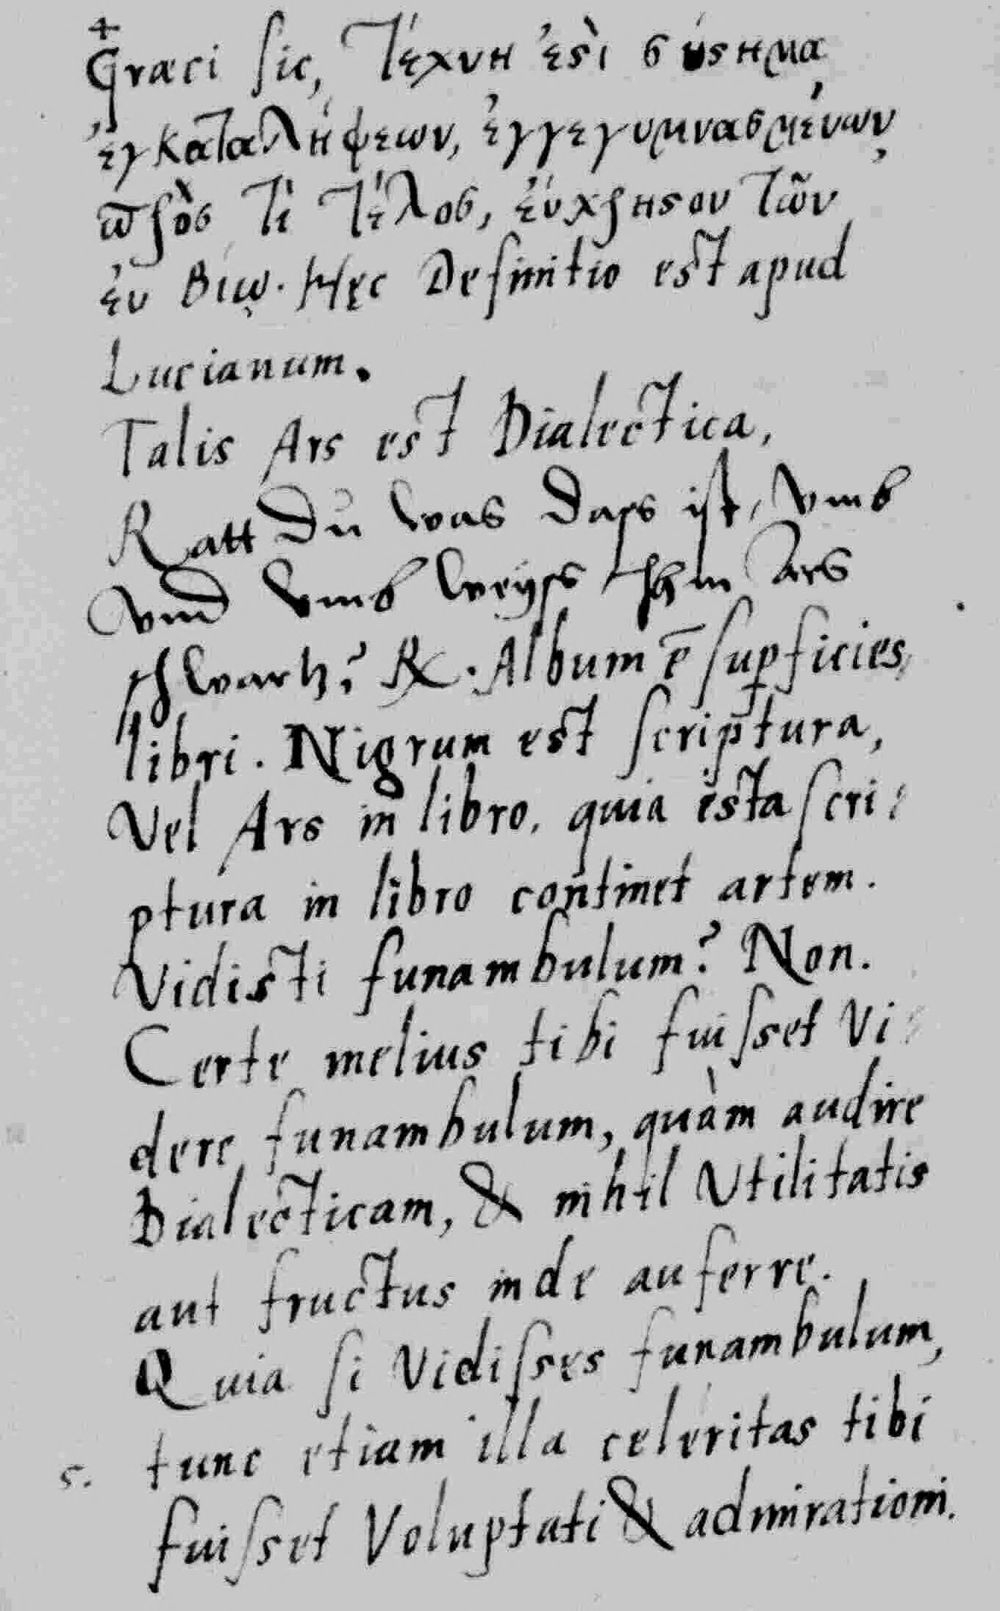 +
Græci sic, Τέχνη ἐστὶ σύστημα
ἐγκαταλήψεων, ἐγγεγυμνασμένων
πρὸς τὶ τέλος, εὔχρηστον τῶν
ἐν βίῳ. Hęc Definitio est apud
Lucianum.
Talis Ars est Dialectica,
Ratt Du was dass ist, vmb
vnd vmb weyss Ihm Ars
schwartz? ℞. Album ē supficies
libri. Nigrum est scriptura,
Vel Ars in libro, quia ista scri:
ptura in libro continet artem.
Vidisti funambulum? Non.
Certe melius tibi fuisset Vi:
dere funambulum, quàm audire
Dialecticam, & nihil Vtilitatis
aut fructus inde auferre.
Quia si Vidisses funambulum,
s. tunc etiam illa celeritas tibi
fuisset Voluptati & admirationi.